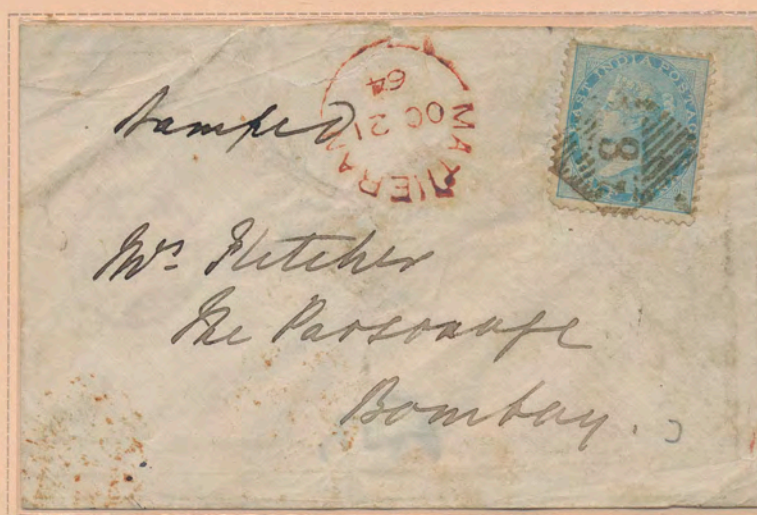 Stamped
MATHERAN
OC 21
64
EAST INDIA POSTAGE
8
Mrs Fletcher
The Parsonage
Bombay.